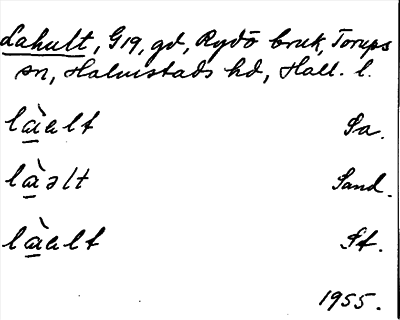 Lahult, G19, gd, Rydö bruk, Torups
sn, Halmstads hd, Hall. l.
là̲alt Sa.
là̲əlt Sand.
là̲alt Ft.
1955.